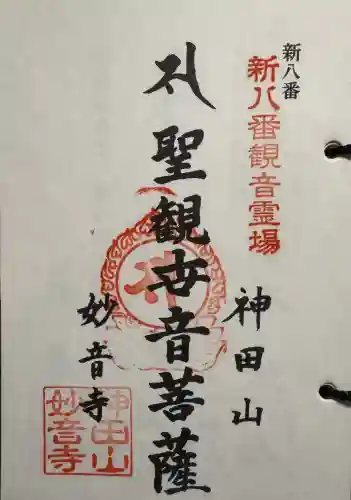 新八番
新八番観音霊場
神田山
聖観世音菩薩
妙音寺
神田山
妙音寺